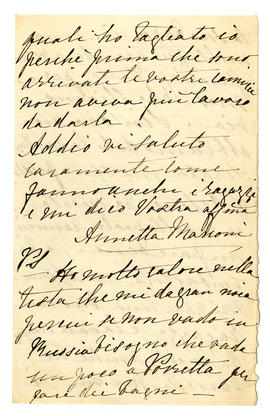 quali ho tagliato io
perché prima che sono
arrivate le vostre camicie
non aveva più lavoro
da darla.
Addio vi saluto
caramente come
fanno anche i ragazzi
e mi dico Vostra aff.ma
Annetta Manoni
PS
Ho molto calore nella
testa che mi da gran noia
percui se non vado in
Russia bisogno che vada
un poco a Porretta per
fare dei bagni —